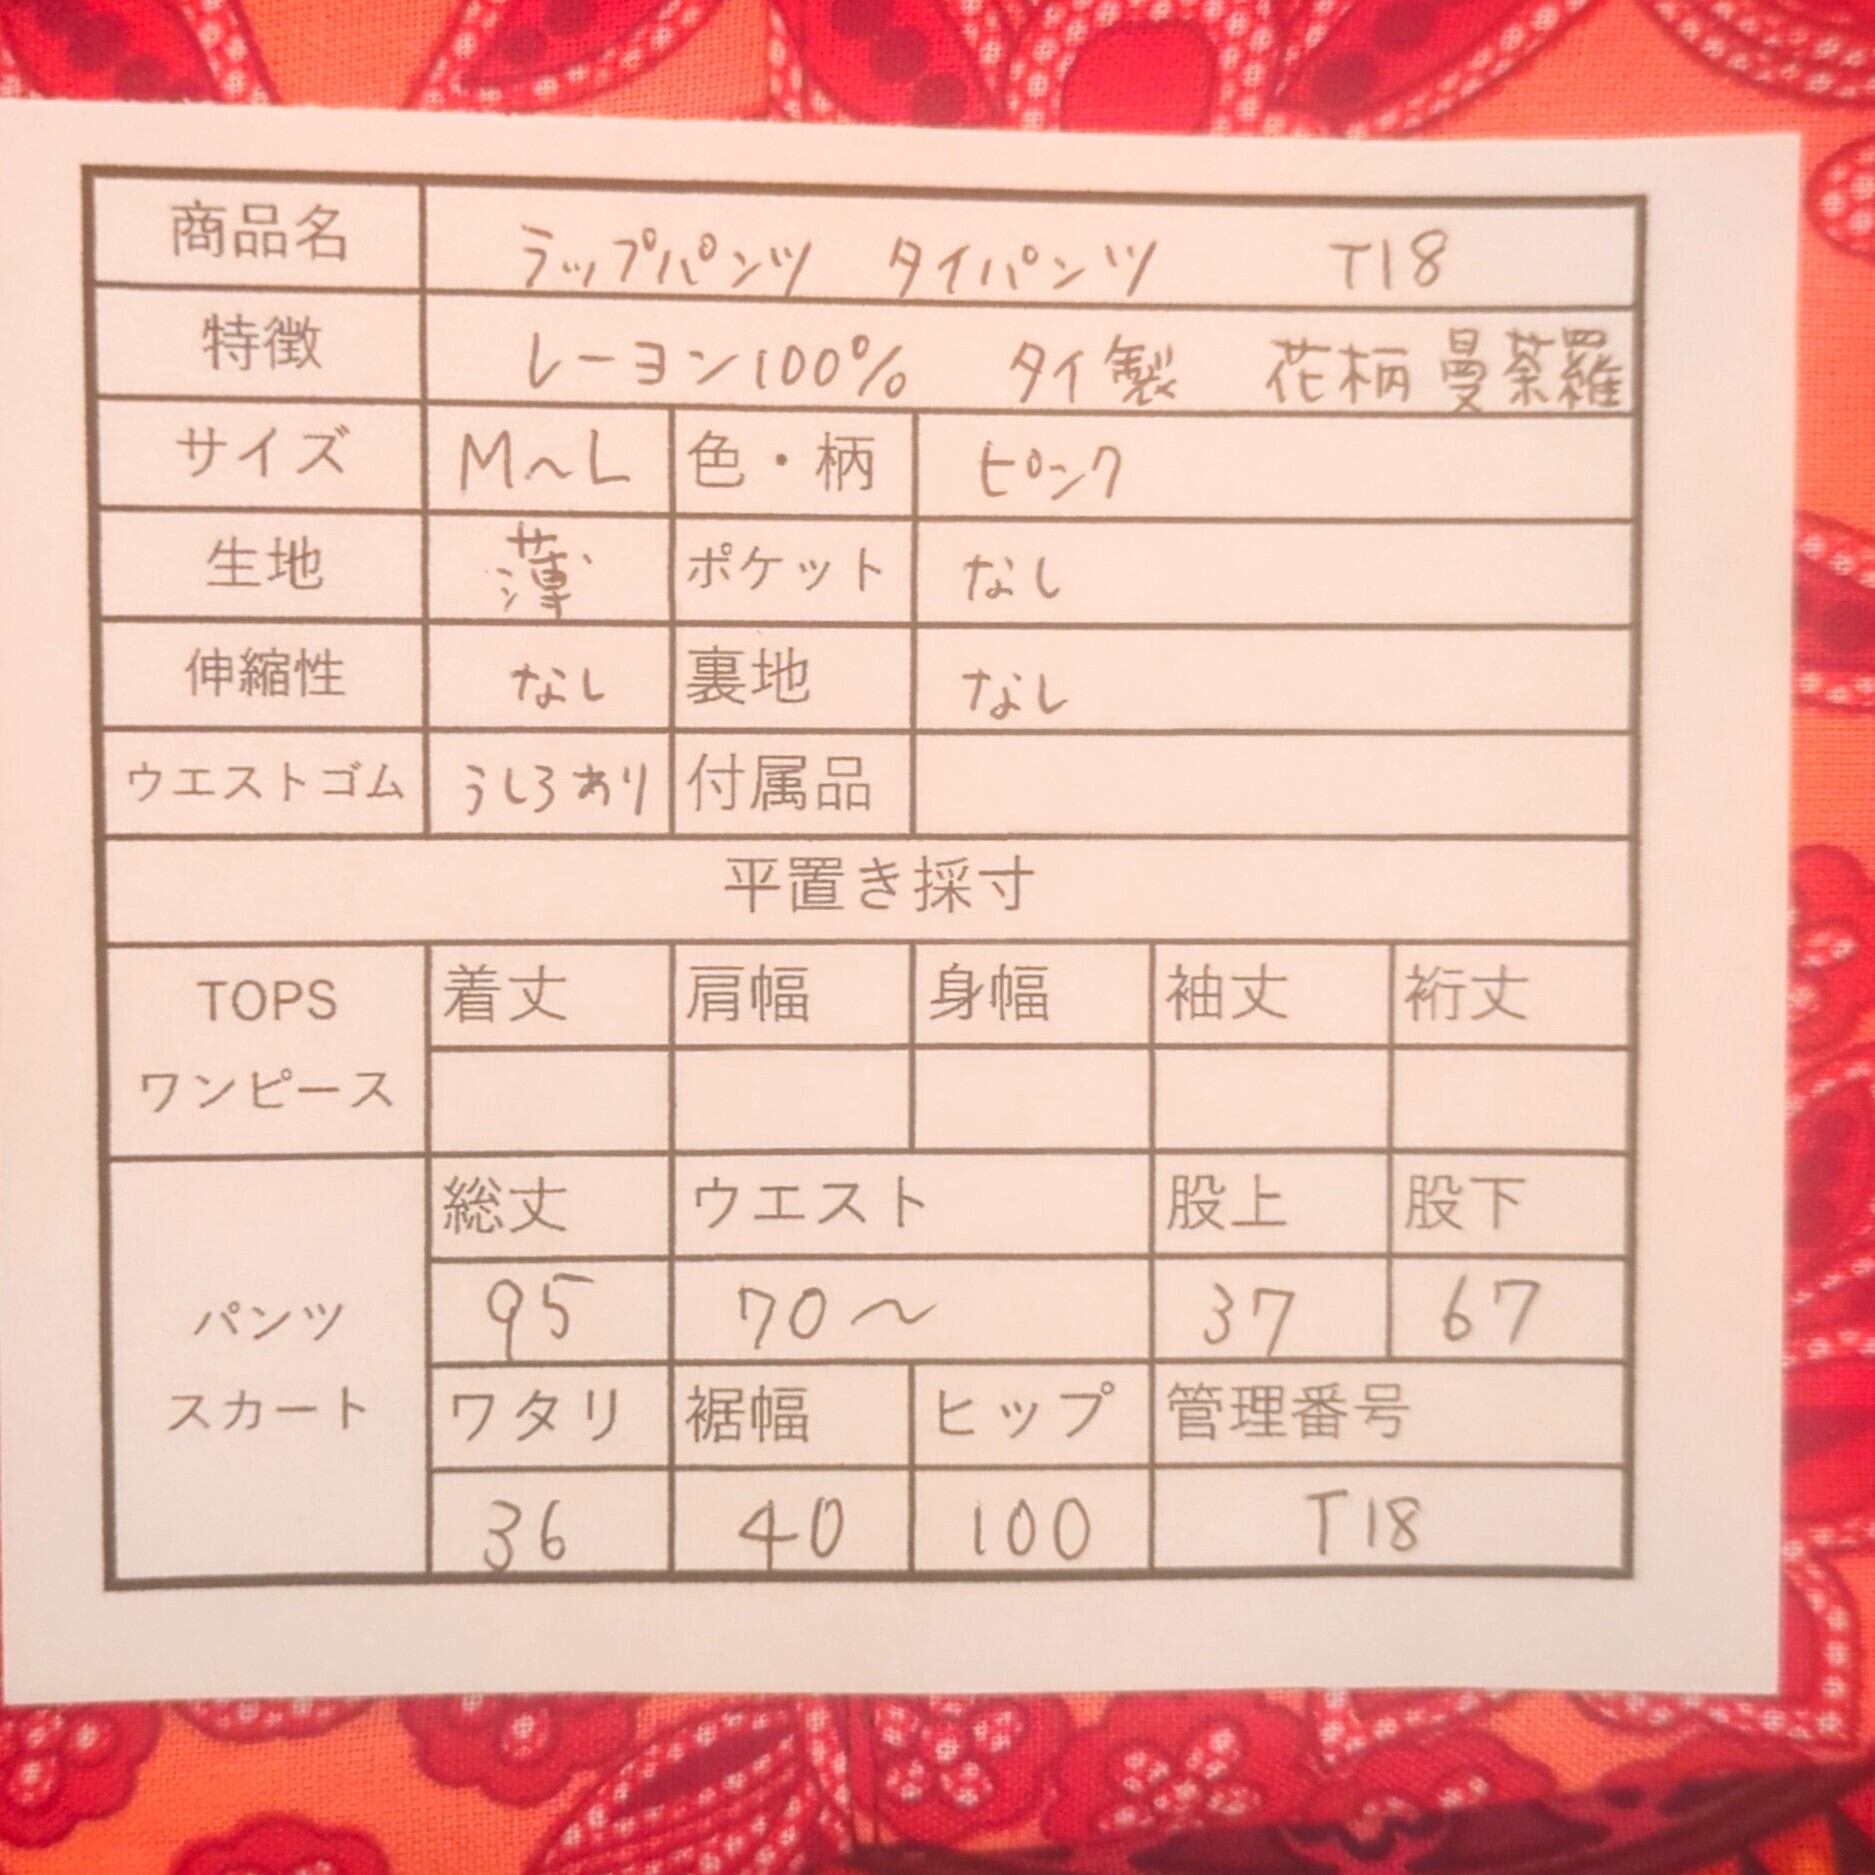 商品名 ラップパンツ タイパンツ T18
特徴 レーヨン100% タイ製 花柄 曼荼羅
サイズ M〜L 色・柄 ピンク
生地 薄 ポケット なし
伸縮性 なし 裏地 なし
ウエストゴム うしろあり 付属品
平置き採寸
TOPS
ワンピース
着丈 肩幅 身幅 袖丈 裄丈
パンツ
スカート
総丈 ウエスト 股上 股下
95 70〜 37 67
ワタリ 裾幅 ヒップ 管理番号
36 40 100 T18